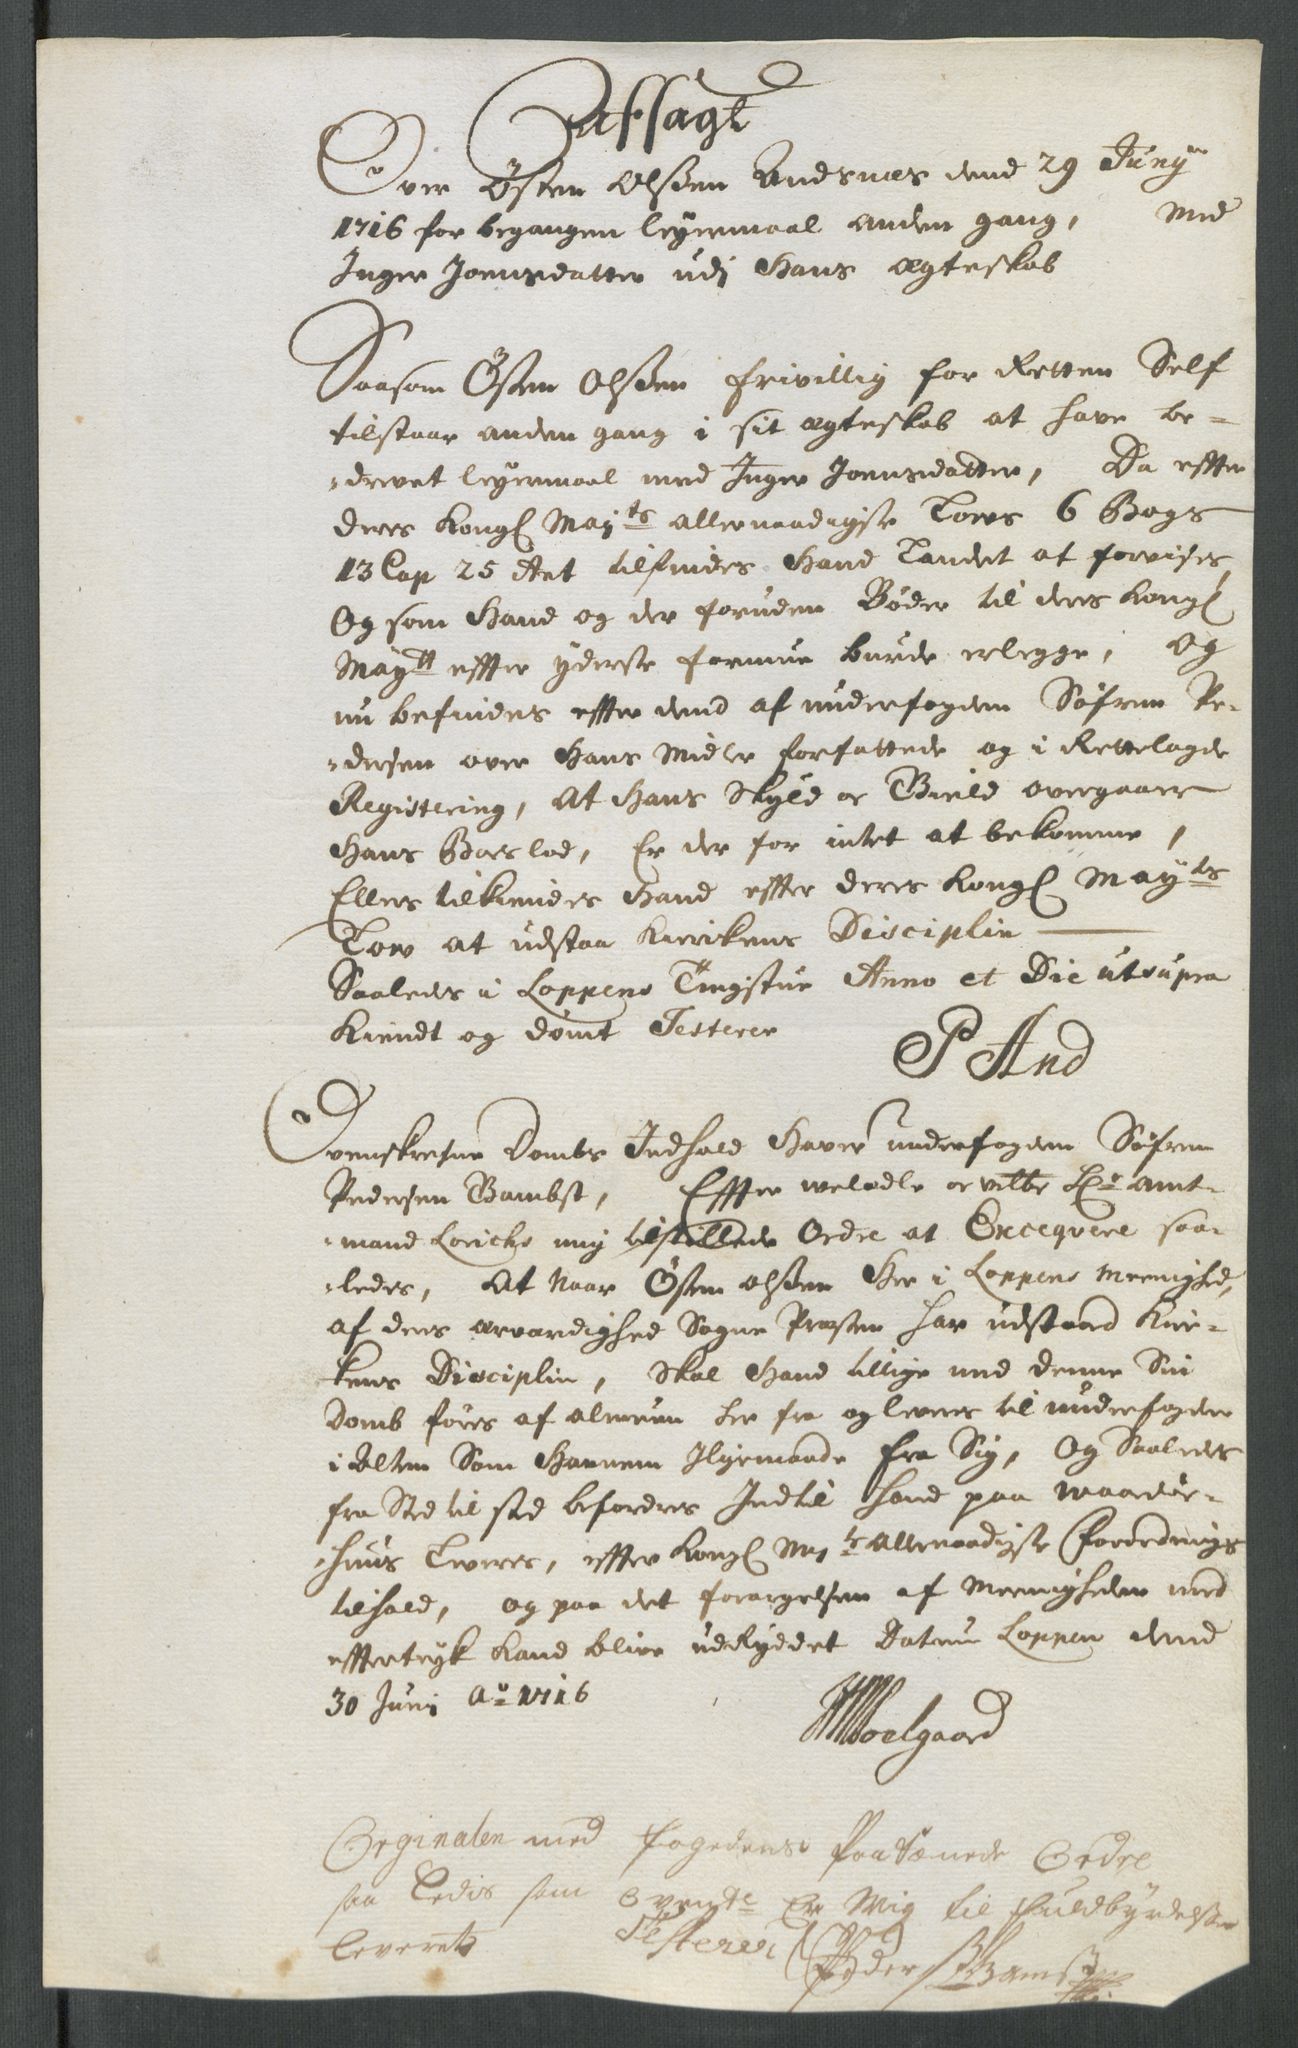 Afsagt
Over Østen Olßen Andsnes dend 29 Juny
1716 for begangen leyermaal anden gang, med
Inger Joensdatter udi Hans ægteskab
Saasom Østen Olßen frivillig for Retten Self
tilstaar anden gang i sit ægteskab at have be-
-drevet leyermaal med Inger Joensdatter, Da effter
deres Kongl May:ts allernaadigste Lows 6 Bogs
13 Cap 25 Art tilfindes Hand Landet at forvises,
Og som Hand og der foruden Bøder til deres Kongl
May:tt effter yderste formue burde erlegge, og
nu befindes effter dend af underfogden Søfren Pe-
-dersen over Hans Midler forfattede og i Rettelagde
Registering, At Hans Skyld oc Gield overgaar
Hans Boeslod, Er der for intet at bekomme,
Ellers tilkiendes Hand effter deres Kongl May:ts
Low at udstaa Kierkens Disciplin
Saaledes i Loppens Tingstue Anno et Die utsupra
Kiendt og dømt Testerer
P And
Ovenskrefne Dombs Indhold Haver underfogden Søfren
Pedersen Bambst, Effter welædle oc velbr Hr Amt-
-mand Lorichs mig tilstillede Ordre at Excequere saa-
-ledes, At Naar Østen Olßen Her i Loppens Meenighed,
af ders ærværdighed Sogne Præsten har udstaaed Kier-
kens Disciplin, Skal Hand tillige med denne Sin
Domb føres af almuen her fra og leveres til underfogden
i Alten Som Hannem Ligemaade fra Sig, Og Saaledes
fra Sted til sted befordres Indtil Hand paa Waardøe-
-huus Leveres, effter Kongl May:ts allernaadigste Forordnings
tilhold, og paa det forargelsen af Meenigheden med
effertryk Kand blive udRyddet Datum Loppen dend
30 Juni Ao 1716
Moelgaard
Orginalen med fogedens Paateinede Ordre
saa Ledis som Er Mig til fuldbyrdelse
leveret Testerer Peder Bamst